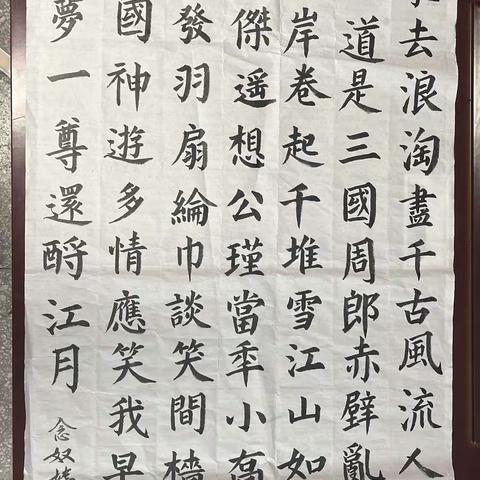 去浪淘盡千古風流人
道是三國周郎赤壁亂
岸卷起千堆雪江山如
傑遥想公瑾當年小喬
發羽扇綸巾談笑間檣
國神遊多情應笑我早
夢一尊還酹江月
念奴嬌